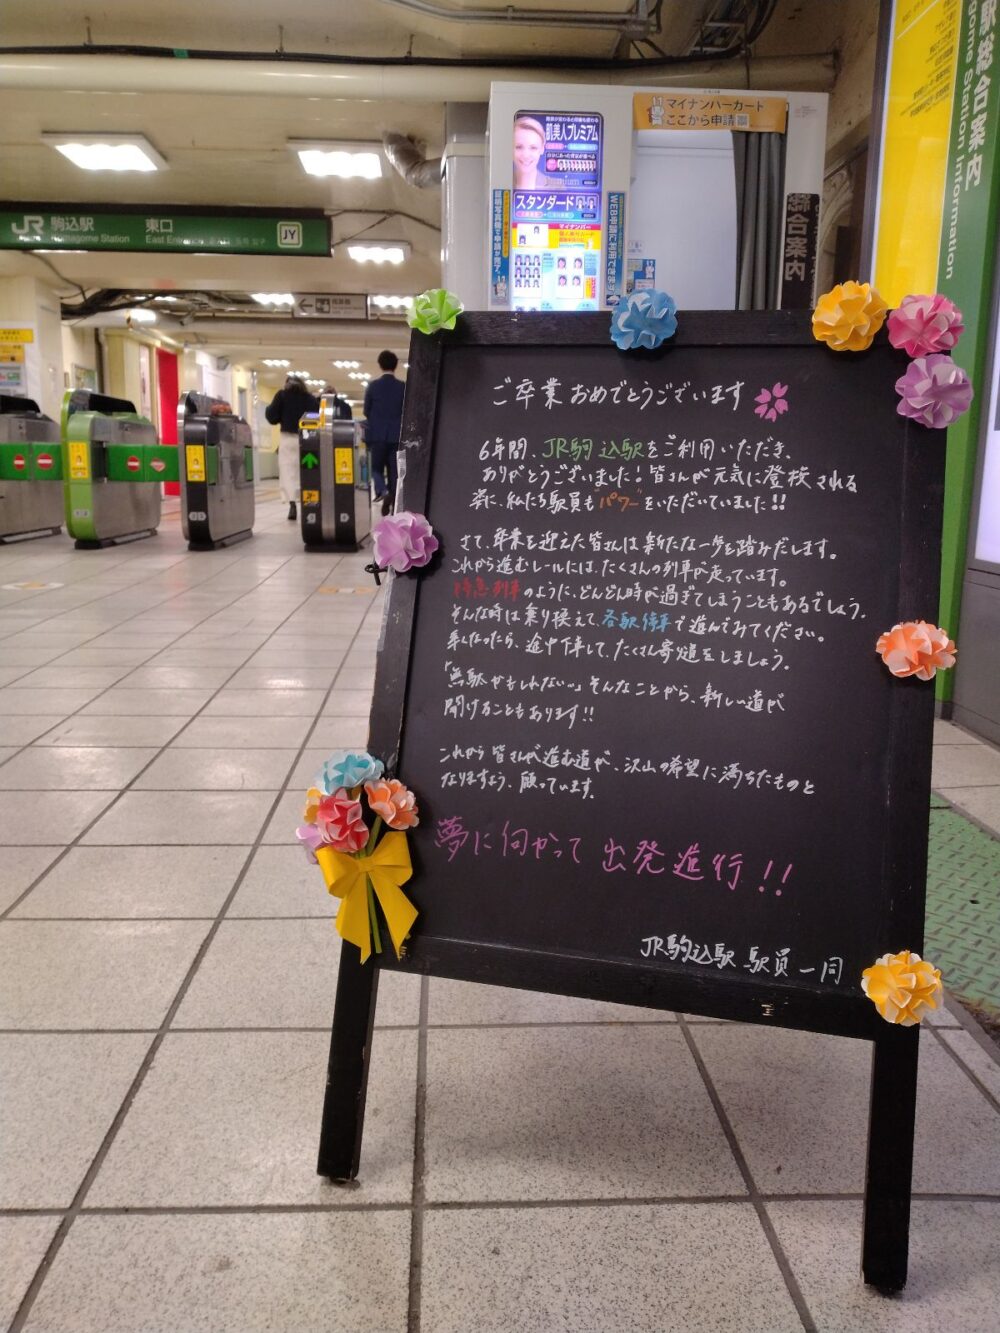 JR 駒込駅
Komagome Station
東口
JY
肌美人プレミアム
スタンダード
マイナンバー
WEB申請ご利用できます
マイナンバーカード
ここから申請
総合案内
駅総合案内
gome Station Information
ご卒業おめでとうございます
6年間、JR駒込駅をご利用いただき、
ありがとうございました!皆さんが元気に登校される
姿に、私たち駅員も"パワー"をいただいていました!!
さて、卒業を迎えた皆さんは新たな一歩を踏みだします。
これから進むレールには、たくさんの列車が走っています。
特急列車のように、どんどん時が過ぎてしまうこともあるでしょう。
そんな時は乗り換えて、各駅停車で進んでみてください。
楽しなったら、途中下車して、たくさん寄り道をしましょう。
「無駄かもしれない…」そんなことから、新しい道が
開けることもあります!!
これから皆さんが進む道が、沢山の希望に満ちたものと
なりますよう、願っています。
夢に向かって出発進行!!
JR駒込駅 駅員一同